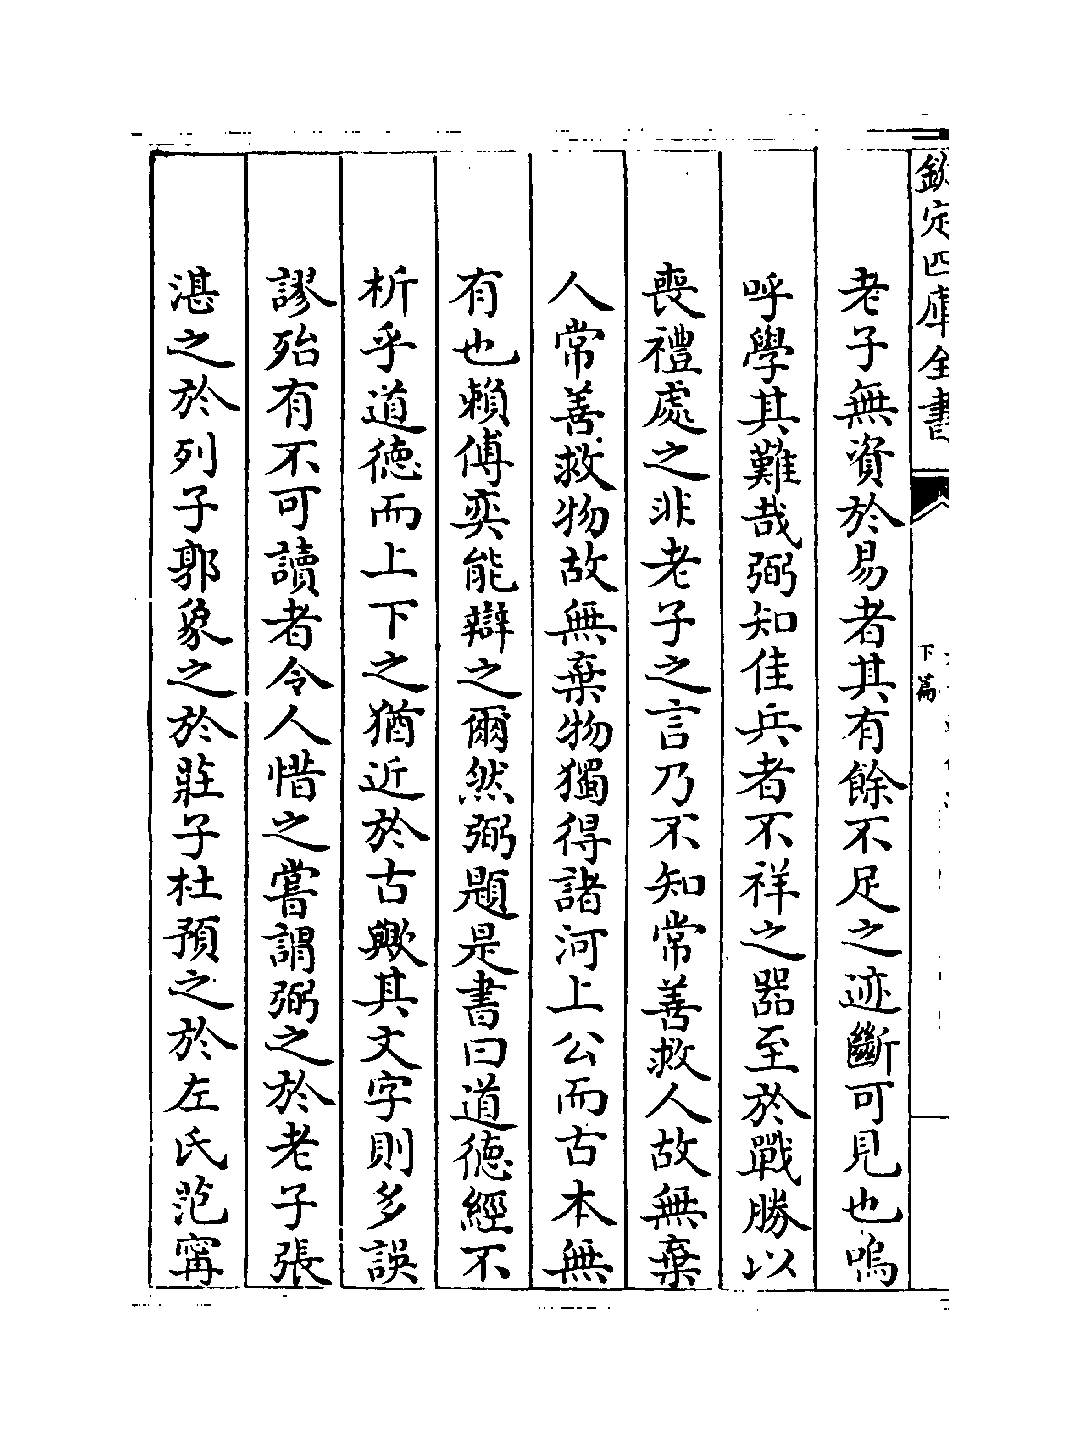 欽定四庫全書
下篇
老子無資於易者其有餘不足之迹斷可見也嗚
呼學其難哉弼知佳兵者不祥之器至於戰勝以
喪禮處之非老子之言乃不知常善救人故無棄
人常善救物故無棄物獨得諸河上公而古本無
有也賴傅奕能辯之爾然弼題是書曰道德經不
析乎道德而上下之猶近於古歟其文字則多誤
謬殆有不可讀者令人惜之嘗謂弼之於老子張
湛之於列子郭象之於莊子杜預之於左氏范甯